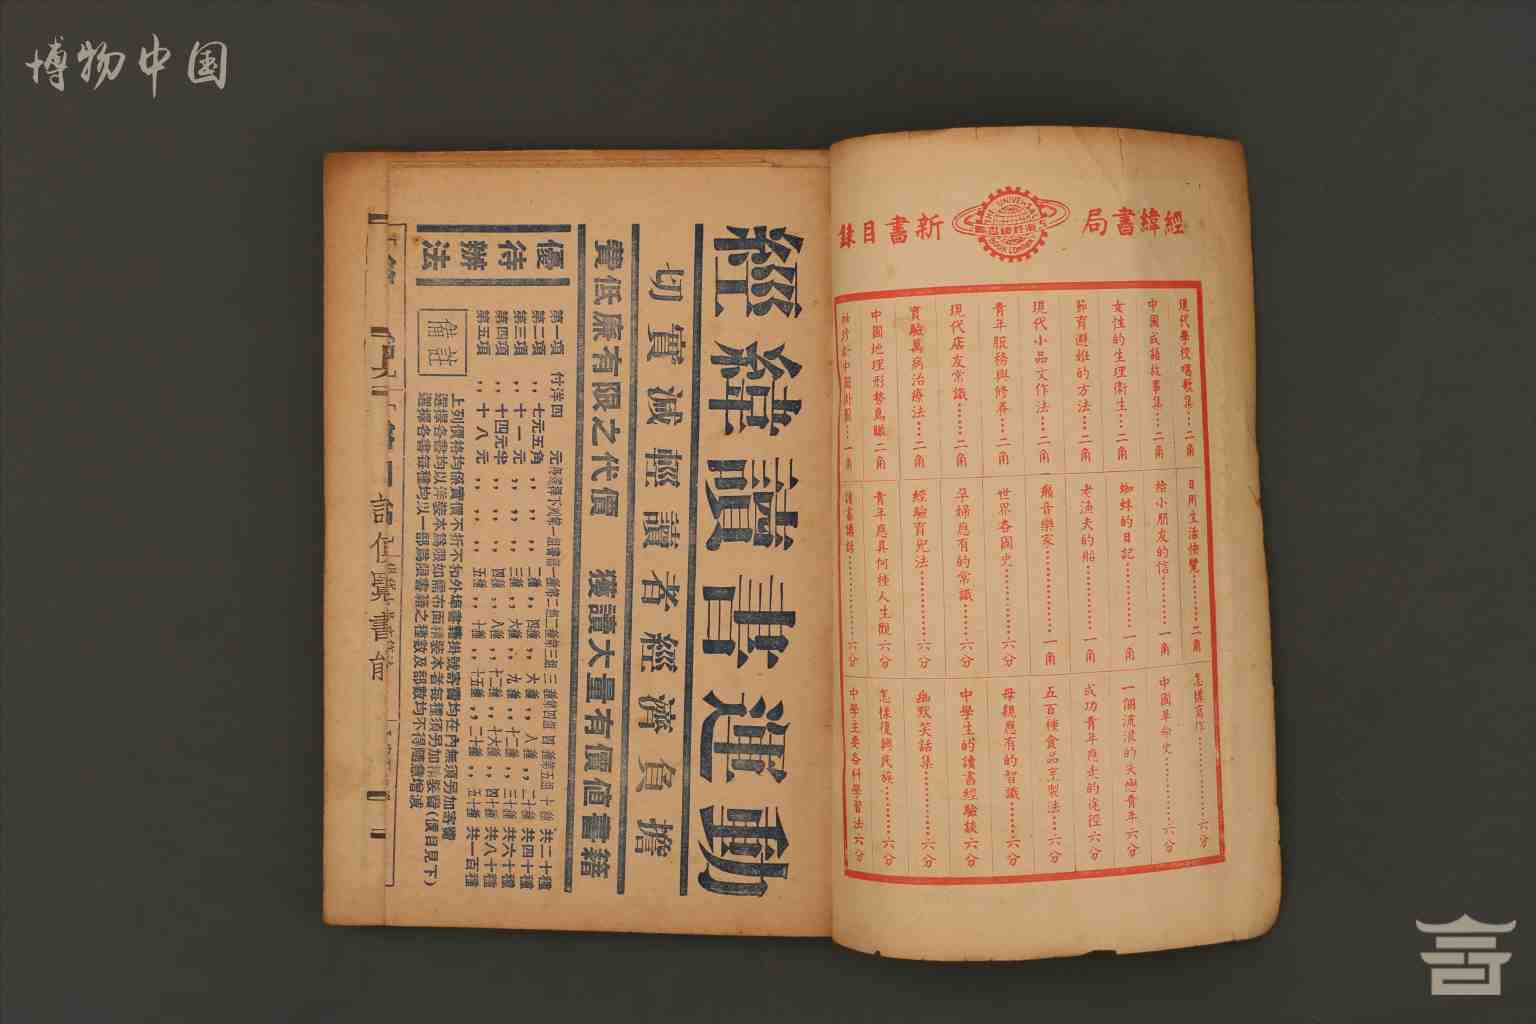 博物中国
經緯書局
THE UNIVERSAL
BOOK COMPANY
新書目錄
現代學校唱歌集…二角
中國成語故事集…二角
女性的生理衛生…二角
節育避姙的方法…二角
現代小品文作法…二角
青年服務與修養…二角
現代店友常識……二角
實驗萬病治療法…二角
中國地理形勢鳥瞰二角
日用生活快覽……二角
給小朋友的信……一角
蜘蛛的日記………一角
老漁夫的船………一角
飛音樂家…………一角
世界各國史………六分
孕婦應有的常識…六分
經驗育兒法………六分
青年應具何種人生觀六分
讀書講話…………六分
怎樣寫作…………六分
中國革命史………六分
一個流浪的失戀青年六分
成功青年應走的途徑六分
五百種食品烹製法…六分
母親應有的智識……六分
中學生的讀書經驗談六分
幽默笑話集………六分
怎樣復興民族……六分
中學主要各科學習法六分
經緯讀書運動
切實減輕讀者經濟負擔
費低廉有限之代價 獲讀大量有價值書籍
優待辦法
第一項 付洋四元 共二十種
第二項 ,, 七元五角 ,, 二種 ,, 四種 ,, 六種 ,, 八種 ,, 二十種 共四十種
第三項 ,, 十一元 ,, 三種 ,, 六種 ,, 九種 ,, 十二種 ,, 三十種 共六十種
第四項 ,, 十四元半 ,, 四種 ,, 八種 ,, 十二種 ,, 十六種 ,, 四十種 共八十種
第五項 ,, 十八元 ,, 五種 ,, 十種 ,, 十五種 ,, 二十種 ,, 五十種 共一百種
備註
上列價格均係實價不折不扣外埠書籍掛號寄費均在內無須另加寄費
選擇各書均以洋裝本爲限如需布面精裝本者每種須另加裝費(價目見下)
選擇各書每種均以一部爲限書籍之種數及部數均不得隨意增減